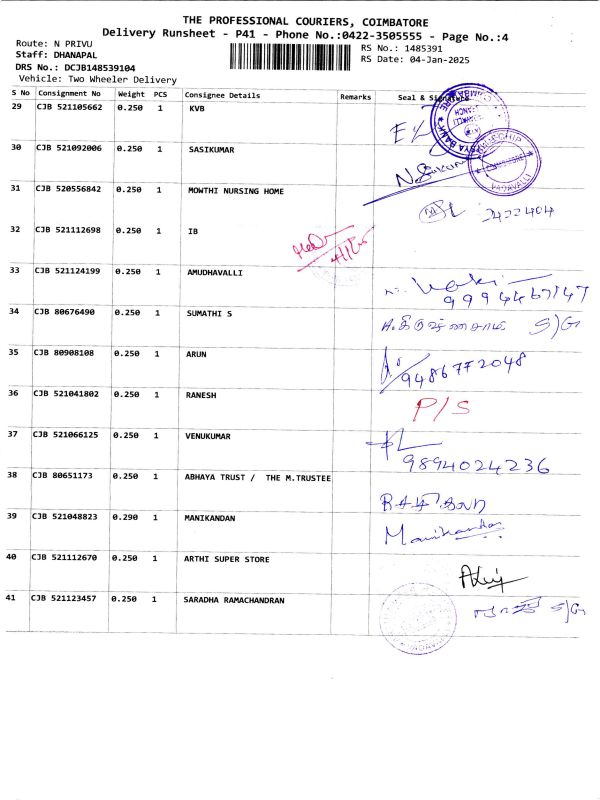 THE PROFESSIONAL COURIERS, COIMBATORE
Delivery Runsheet - P41 - Phone No.:0422-3505555 - Page No.:4
Route: N PRIVU
Staff: DHANAPAL
DRS No.: DCJB148539104
Vehicle: Two Wheeler Delivery
RS No.: 1485391
RS Date: 04-Jan-2025
S No Consignment No Weight PCS Consignee Details Remarks Seal & Signature
29 CJB 521105662 0.250 1 KVB
30 CJB 521092006 0.250 1 SASIKUMAR
31 CJB 520556842 0.250 1 MOWTHI NURSING HOME
32 CJB 521112698 0.250 1 IB
33 CJB 521124199 0.250 1 AMUDHAVALLI
9994467147
34 CJB 80676490 0.250 1 SUMATHI S S/G
35 CJB 80908108 0.250 1 ARUN
9486772048
36 CJB 521041802 0.250 1 RANESH P/S
37 CJB 521066125 0.250 1 VENUKUMAR
9894024236
38 CJB 80651173 0.250 1 ABHAYA TRUST / THE M.TRUSTEE
39 CJB 521048823 0.290 1 MANIKANDAN Manikandan
40 CJB 521112670 0.250 1 ARTHI SUPER STORE
41 CJB 521123457 0.250 1 SARADHA RAMACHANDRAN S/G